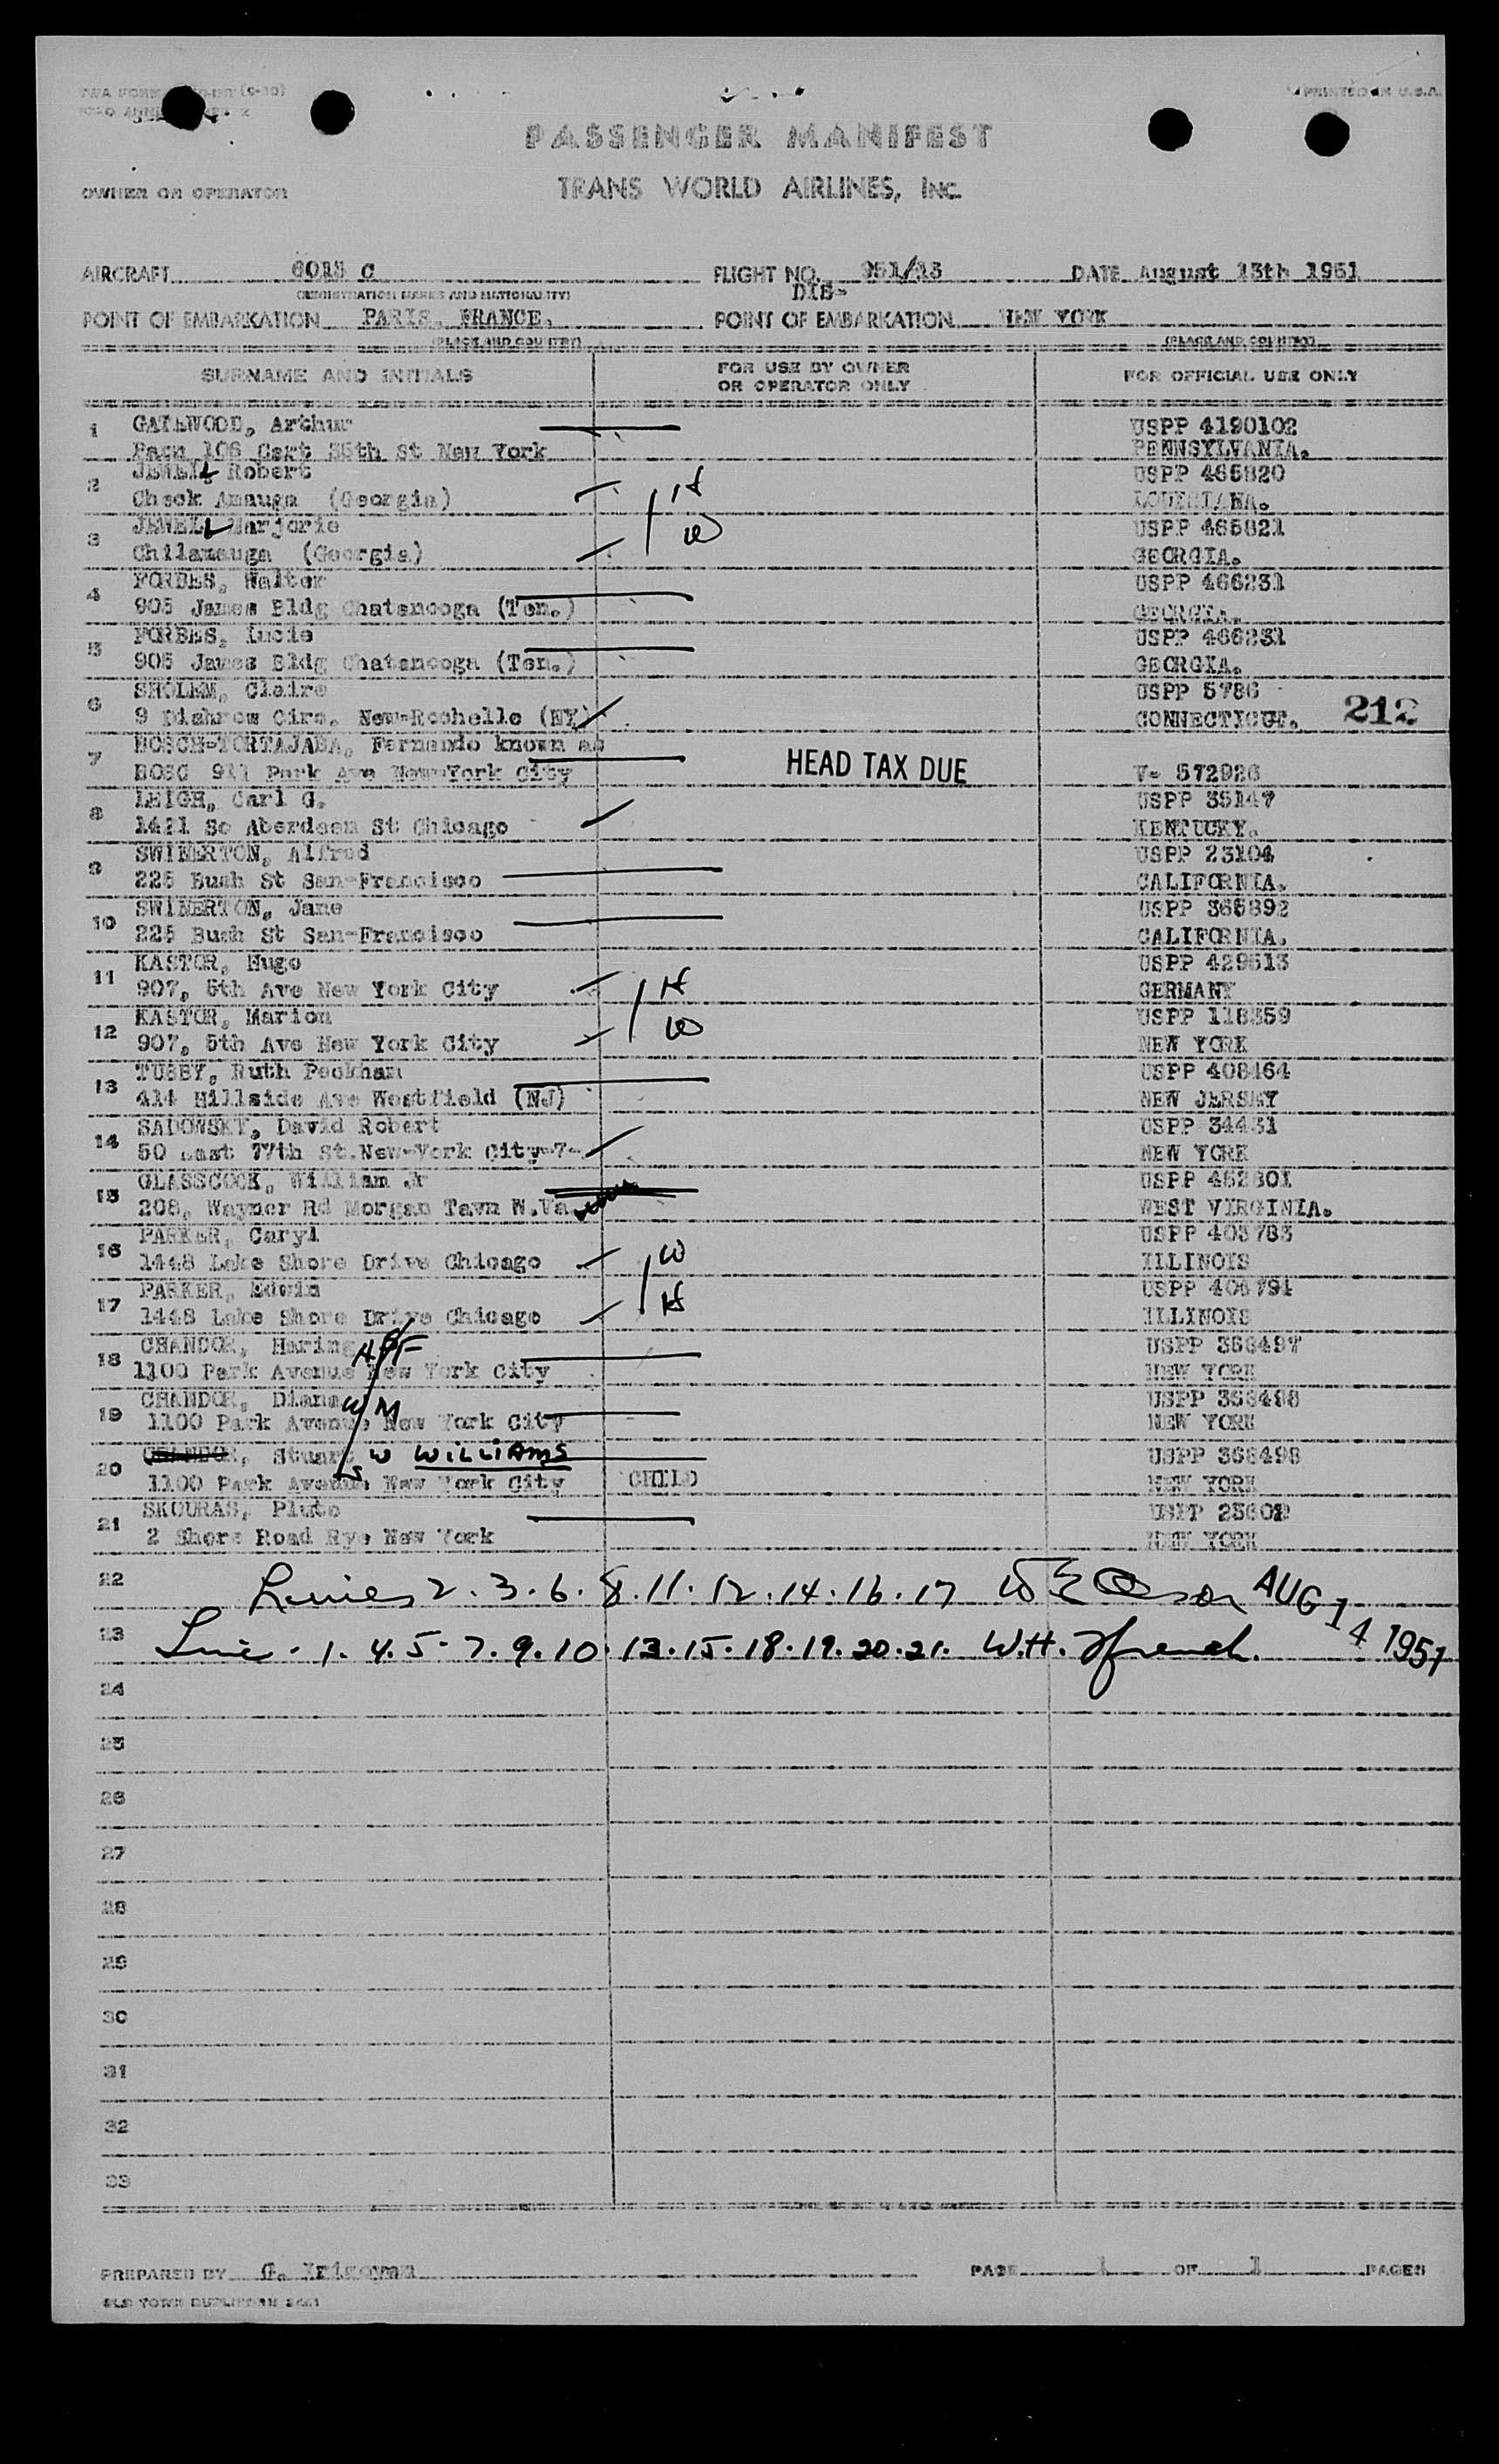 PRINTED IN U.S.A.
PASSENGER MANIFEST
OWNER OR OPERATOR TRANS WORLD AIRLINES, INC.
AIRCRAFT 6015 C FLIGHT NO. 951/13 DATE August 13th 1951
(REGISTRATION MARKS AND NATIONALITY) DIS-
POINT OF EMBARKATION PARIS, FRANCE. POINT OF EMBARKATION NEW YORK
(PLACE AND COUNTRY) (PLACE AND COUNTRY)
SURNAME AND INITIALS FOR USE BY OWNER OR OPERATOR ONLY FOR OFFICIAL USE ONLY
1 GATEWOOD, Arthur USPP 4190102
106 35th St New York PENNSYLVANIA.
2 JEWELL Robert USPP 465820
Check Amauga (Georgia) H LOUISIANA.
3 JEWELL Marjorie W USPP 465821
Chilamauga (Georgia) GEORGIA.
4 FORBES, Walter USPP 466231
905 James Bldg Chatanooga (Ten.) GEORGIA.
5 FORBES, Lucie USPP 466231
905 James Bldg Chatanooga (Ten.) GEORGIA.
6 SHOLEM, Claire USPP 5786
9 Circ. New-Rochelle (NY) CONNECTICUT. 212
7 BOSCH-TORTAJADA, Fernando known as
BOSC 911 Park Ave New-York City HEAD TAX DUE V- 572926
8 LEIGH, Carl G. USPP 35147
1421 So Aberdeen St Chicago KENTUCKY.
9 SWINERTON, Alfred USPP 23104
225 Bush St San-Francisco CALIFORNIA.
10 SWINERTON, Jane USPP 365892
225 Bush St San-Francisco CALIFORNIA.
11 KASTOR, Hugo USPP 429513
907, 5th Ave New York City H GERMANY
12 KASTOR, Marion W USPP 118359
907, 5th Ave New York City NEW YORK
13 TUBBY, Ruth Peckham USPP 408464
414 Hillside Ave Westfield (NJ) NEW JERSEY
14 SADOWSKY, David Robert USPP 34431
50 East 77th St.New-York City-7- NEW YORK
15 GLASSCOCK, William Jr USPP 462801
208, Wagner Rd Morgan Tavn W.Va. WEST VIRGINIA.
16 PARKER, Caryl USPP 405783
1448 Lake Shore Drive Chicago W ILLINOIS
17 PARKER, Edwin H USPP 406791
1448 Lake Shore Drive Chicago ILLINOIS
18 CHANDOR, Haring USPP 366497
1100 Park Avenue New York City NEW YORK
19 CHANDOR, Diana W M USPP 366498
1100 Park Avenue New York City NEW YORK
20 CHANDOR, Stuart W WILLIAMS USPP 366498
1100 Park Avenue New York City CHILD NEW YORK
21 SKOURAS, Pluto USPP 23602
2 Shore Road Rye New York NEW YORK
22 Lines 2.3.6.8.11.12.14.16.17 AUG 14 1951
23 Line. 1.4.5.7.9.10.13.15.18.19.20.21. W.H. French.
24
25
26
27
28
29
30
31
32
33
PREPARED BY G. PAGE 1 OF 1 PAGES